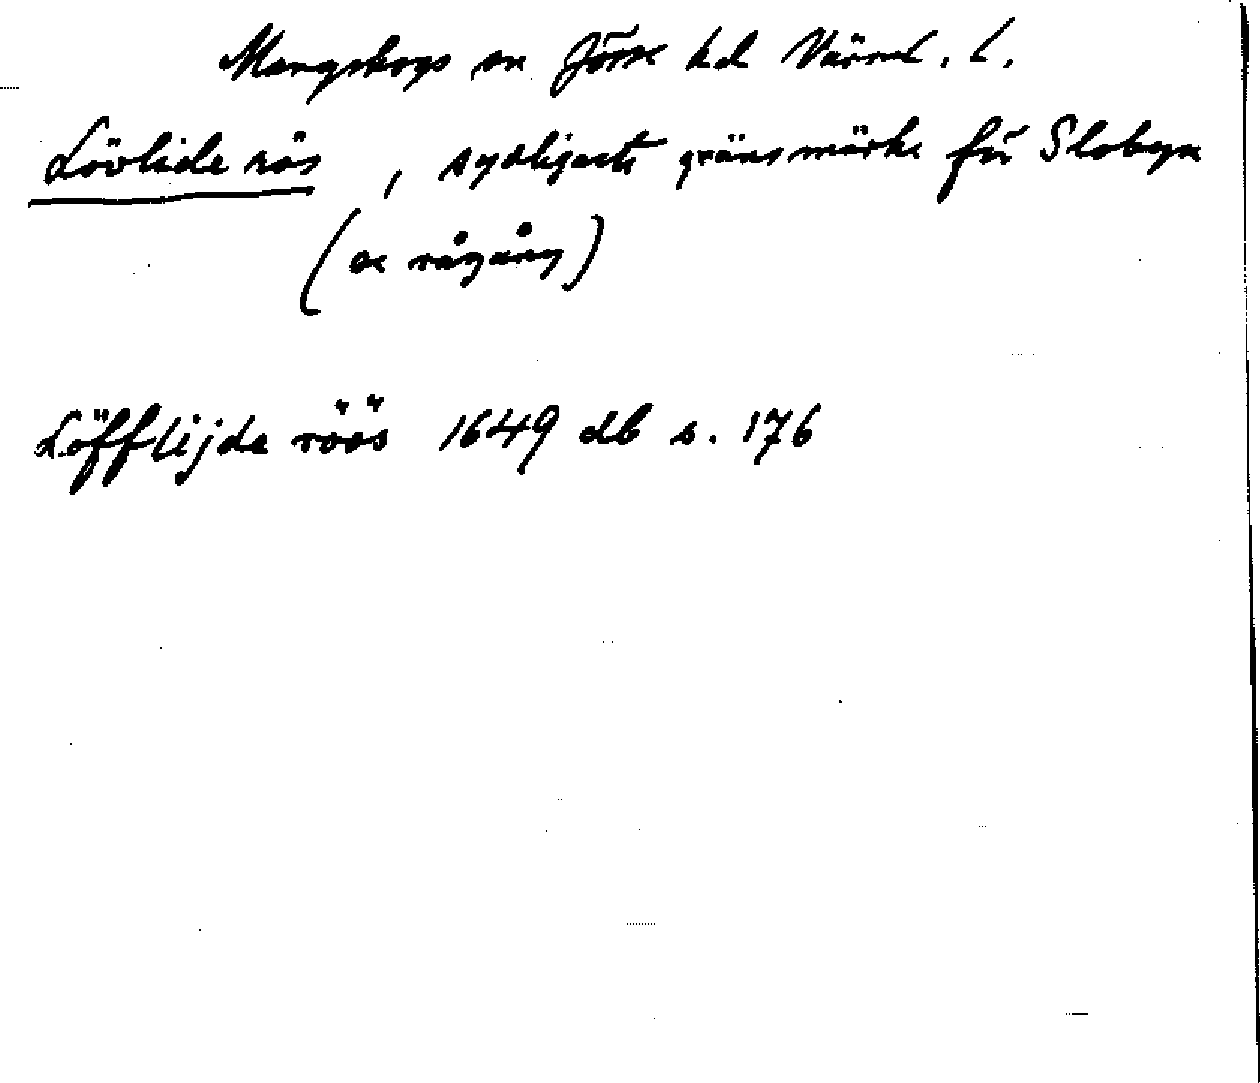 Mangskogs sn Jösse hd Värml. l.
Lövlide rös, sydligaste gränsmärke för Slobyn
(se rågång)
Löfflijde röös 1649 db s. 176